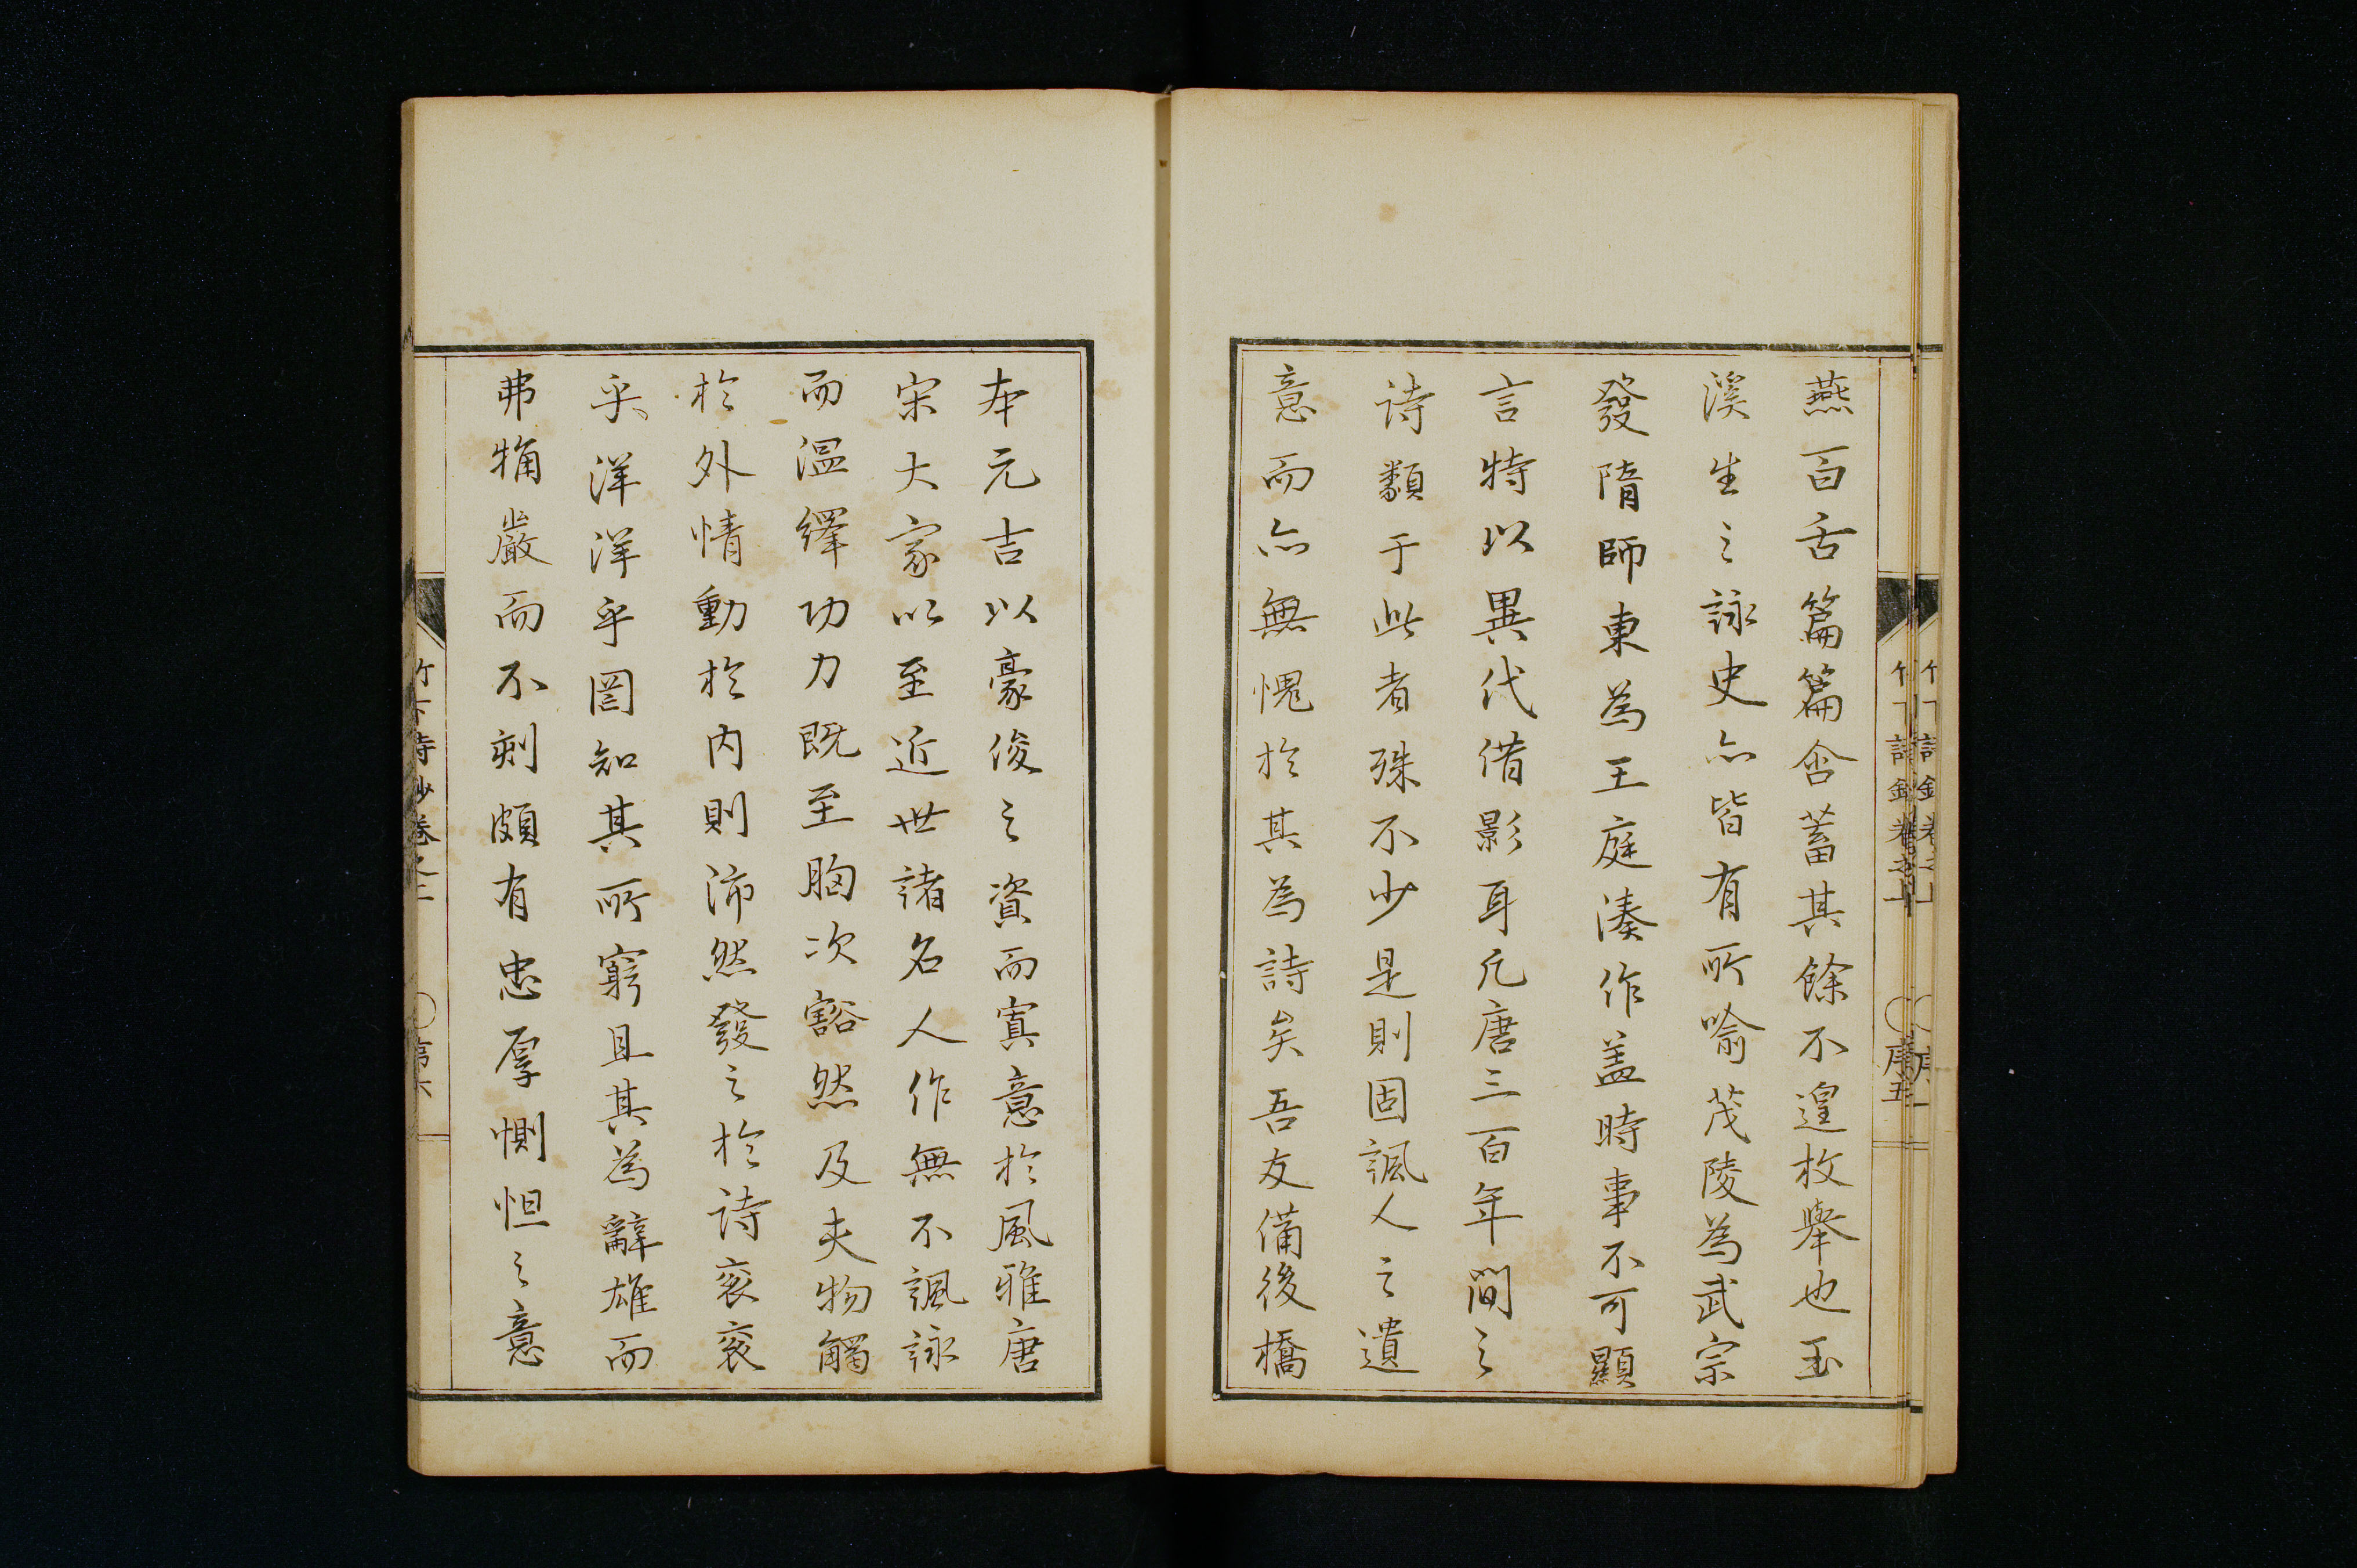 燕百舌篇篇含蓄其餘不遑枚舉也玉
溪生之詠史亦皆有所喻茂陵為武宗
發隋師東為王庭湊作蓋時事不可顯
言特以異代借影耳凡唐三百年間之
詩類于此者殊不少是則固諷人之遺
意而亦無愧於其為詩矣吾友備後橋
本元吉以豪俊之資而寘意於風雅唐
宋大家以至近世諸名人作無不諷詠
而溫繹功力既至胸次豁然及夫物觸
於外情動於内則沛然發之於詩袞袞
乎洋洋乎罔知其所窮且其為辭雄而
弗觕嚴而不刻頗有忠厚惻怛之意
竹下詩鈔卷之上
序五
竹下詩鈔卷之上